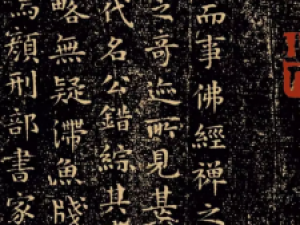 而事佛經禪之
之奇迹所見甚
代名公錯綜其
略無疑滯魚牋
焉顏刑部書家